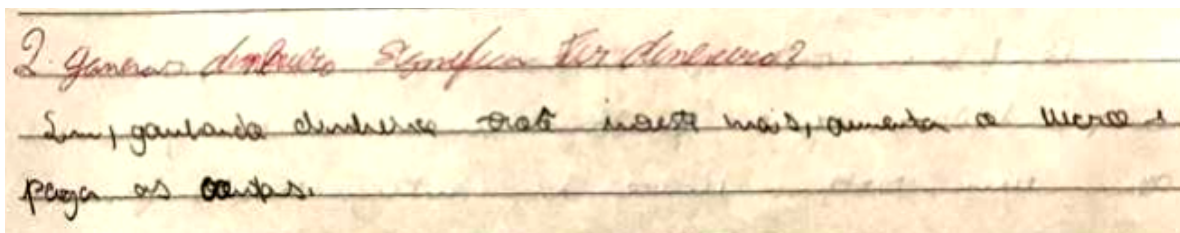 2. Ganhar dinheiro significa ter dinheiro?
Sim, ganhando dinheiro você investe mais, aumenta o lucro e
paga as contas.